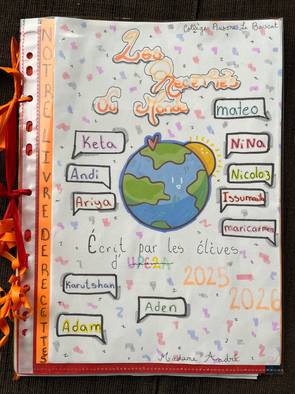 Collège Ausone Le Bouscat
Les
Recettes
du Monde
NOTRE LIVRE DE RECETTES
mateo
Keta
NiNa
Andi
Nicolo3
Ariya
Issumaila
maricarmen
Écrit par les élèves
d'UPE2A
2025-
2026
Karutshan
Aden
Adam
Madame André